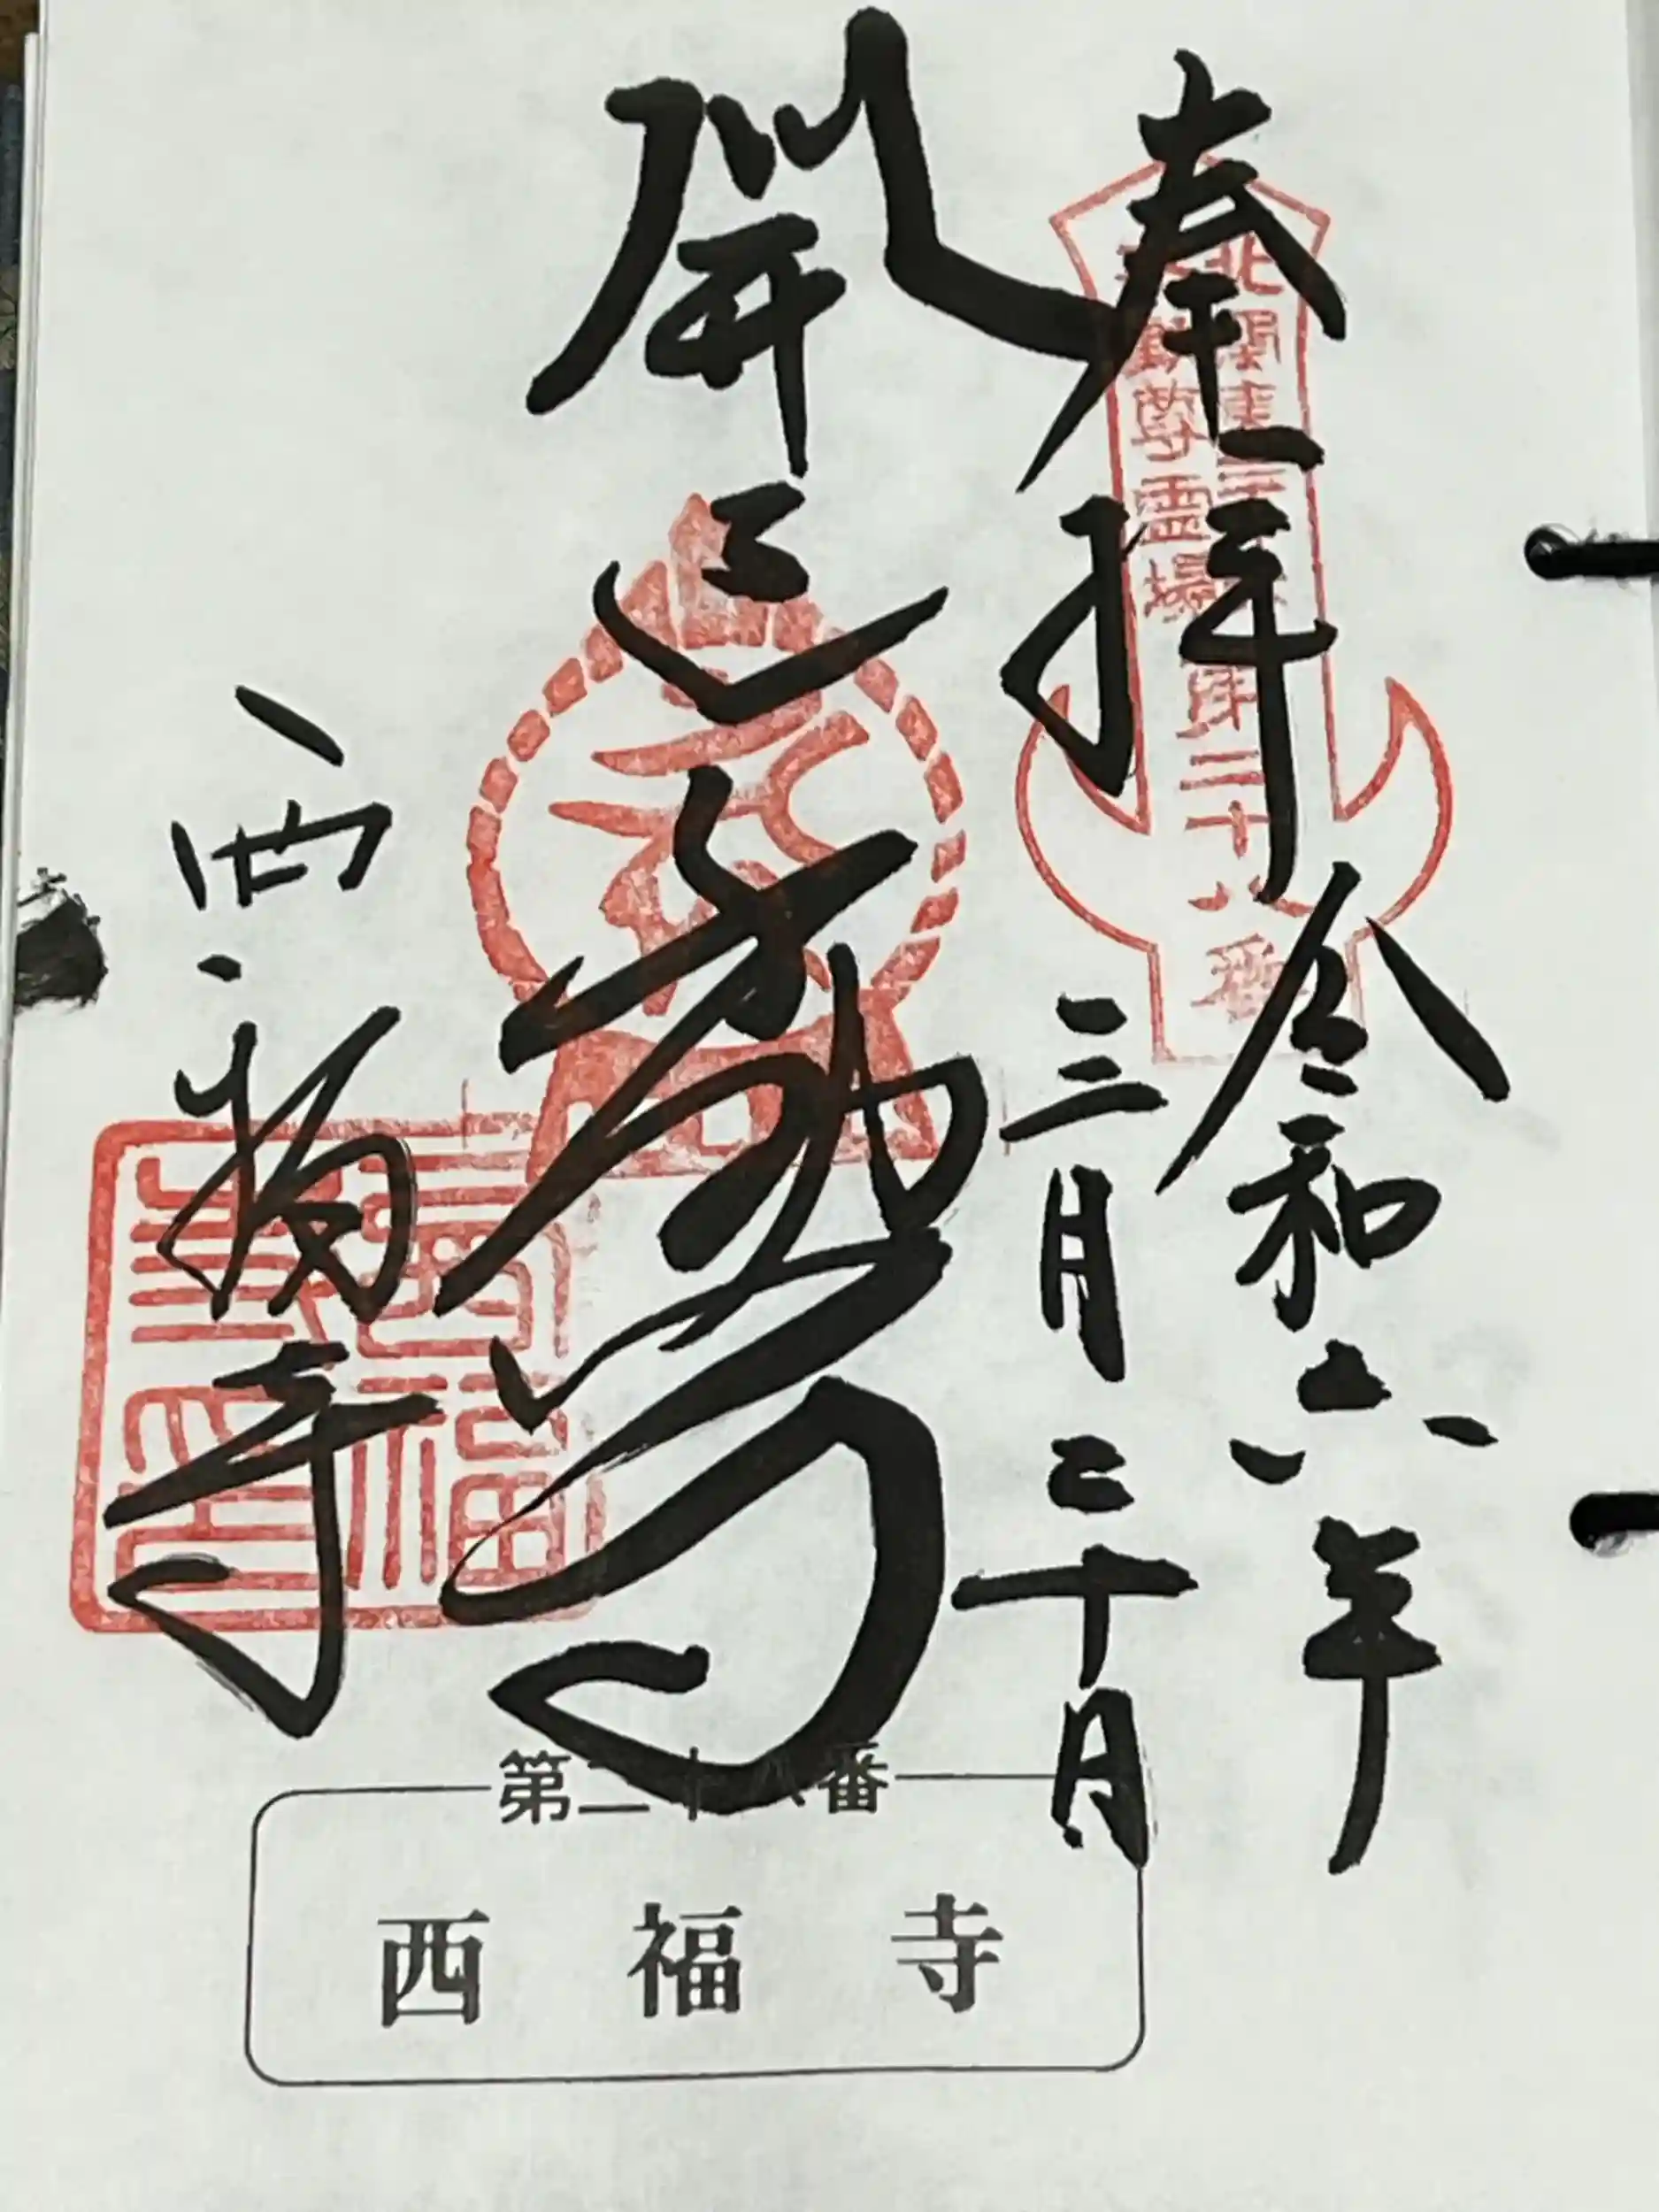 奉拝
令和六年
三月二十日
開運不動尊
西福寺
北関東三十六第二十八番
不動尊霊場
西福
寺印
第二十八番
西福寺